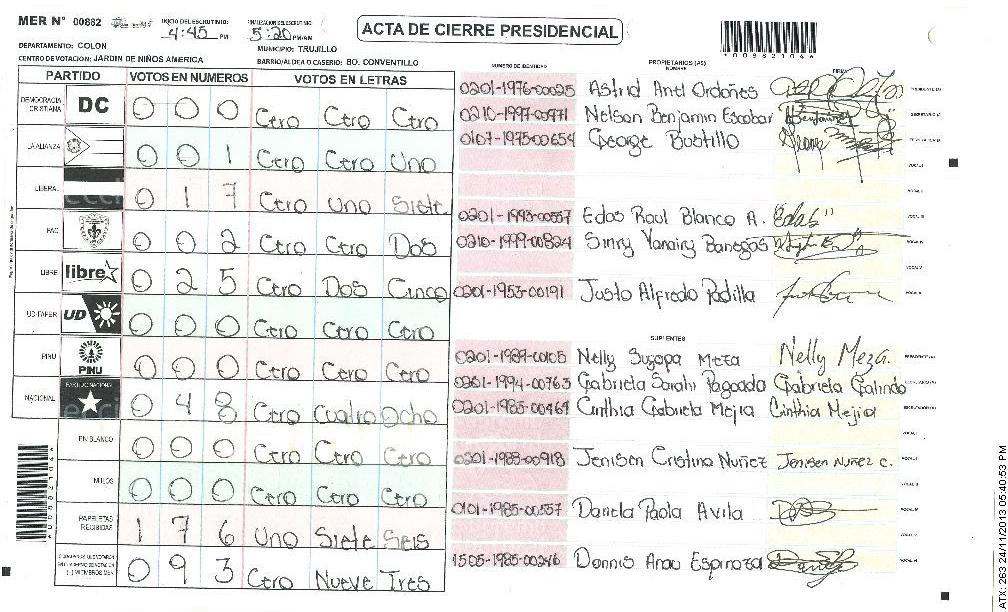 MER N° 00882
INICIO DEL ESCRUTINIO:
4:45 PM
FINALIZACION DEL ESCRUTINIO
5:20 PM/AM
ACTA DE CIERRE PRESIDENCIAL
DEPARTAMENTO: COLON
MUNICIPIO: TRUJILLO
CENTRO DE VOTACION: JARDIN DE NIÑOS AMERICA
BARRIO/ALDEA O CASERIO: BO. CONVENTILLO
PARTIDO VOTOS EN NUMEROS VOTOS EN LETRAS
DEMOCRACIA CRISTIANA DC 0 0 0 Cero Cero Cero
LA ALIANZA 0 0 1 Cero Cero Uno
LIBERAL 0 1 7 Cero Uno Siete
PAC 0 0 2 Cero Cero Dos
LIBRE libre 0 2 5 Cero Dos Cinco
UD-FAPER UD 0 0 0 Cero Cero Cero
PINU PINU 0 0 0 Cero Cero Cero
NACIONAL PARTIDO NACIONAL 0 4 8 Cero Cuatro Ocho
EN BLANCO 0 0 0 Cero Cero Cero
NULOS 0 0 0 Cero Cero Cero
PAPELETAS RECIBIDAS 1 7 6 Uno Siete Seis
0 9 3 Cero Nueve Tres
NUMERO DE IDENTIDAD
PROPIETARIOS (AS)
NOMBRE
FIRMA
0201-1976-00025 Astrid Anel Ordoñes
0210-1997-00971 Nelson Benjamin Escobar
0107-1975-00654 George Bustillo
0201-1993-00557 Edas Raul Blanco A.
0210-1999-00824 Smry Yanairy Banegas
0201-1953-00191 Justo Alfredo Padilla
SUPLENTES
0201-1989-00105 Nelly Suyapa Meza Nelly Meza.
0201-1994-00763 Gabriela Sarahi Pagoada Gabriela Galindo
0201-1985-00469 Cinthia Gabriela Mejia Cinthia Mejia
0201-1983-00918 Jenisen Cristina Nuñez Jenisen Nuñez C.
0101-1985-00557 Daniela Paola Avila
1505-1985-00246 Dennis Anau Espinoza
ATX: 263 24/11/2013 05:40:53 PM